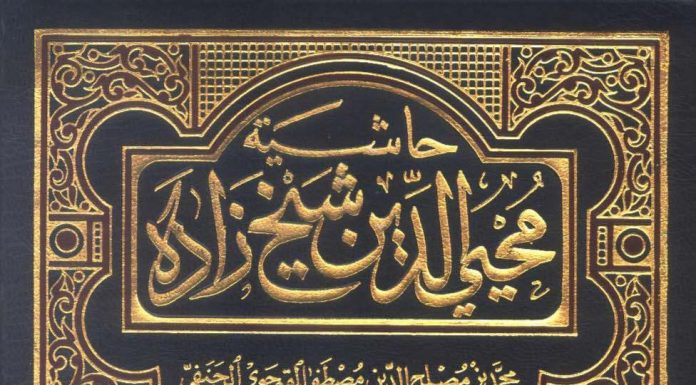 حاشية
محيي الدين شيخ زاده
محمد بن مصلح الدين مصطفى القوجوي الحنفي